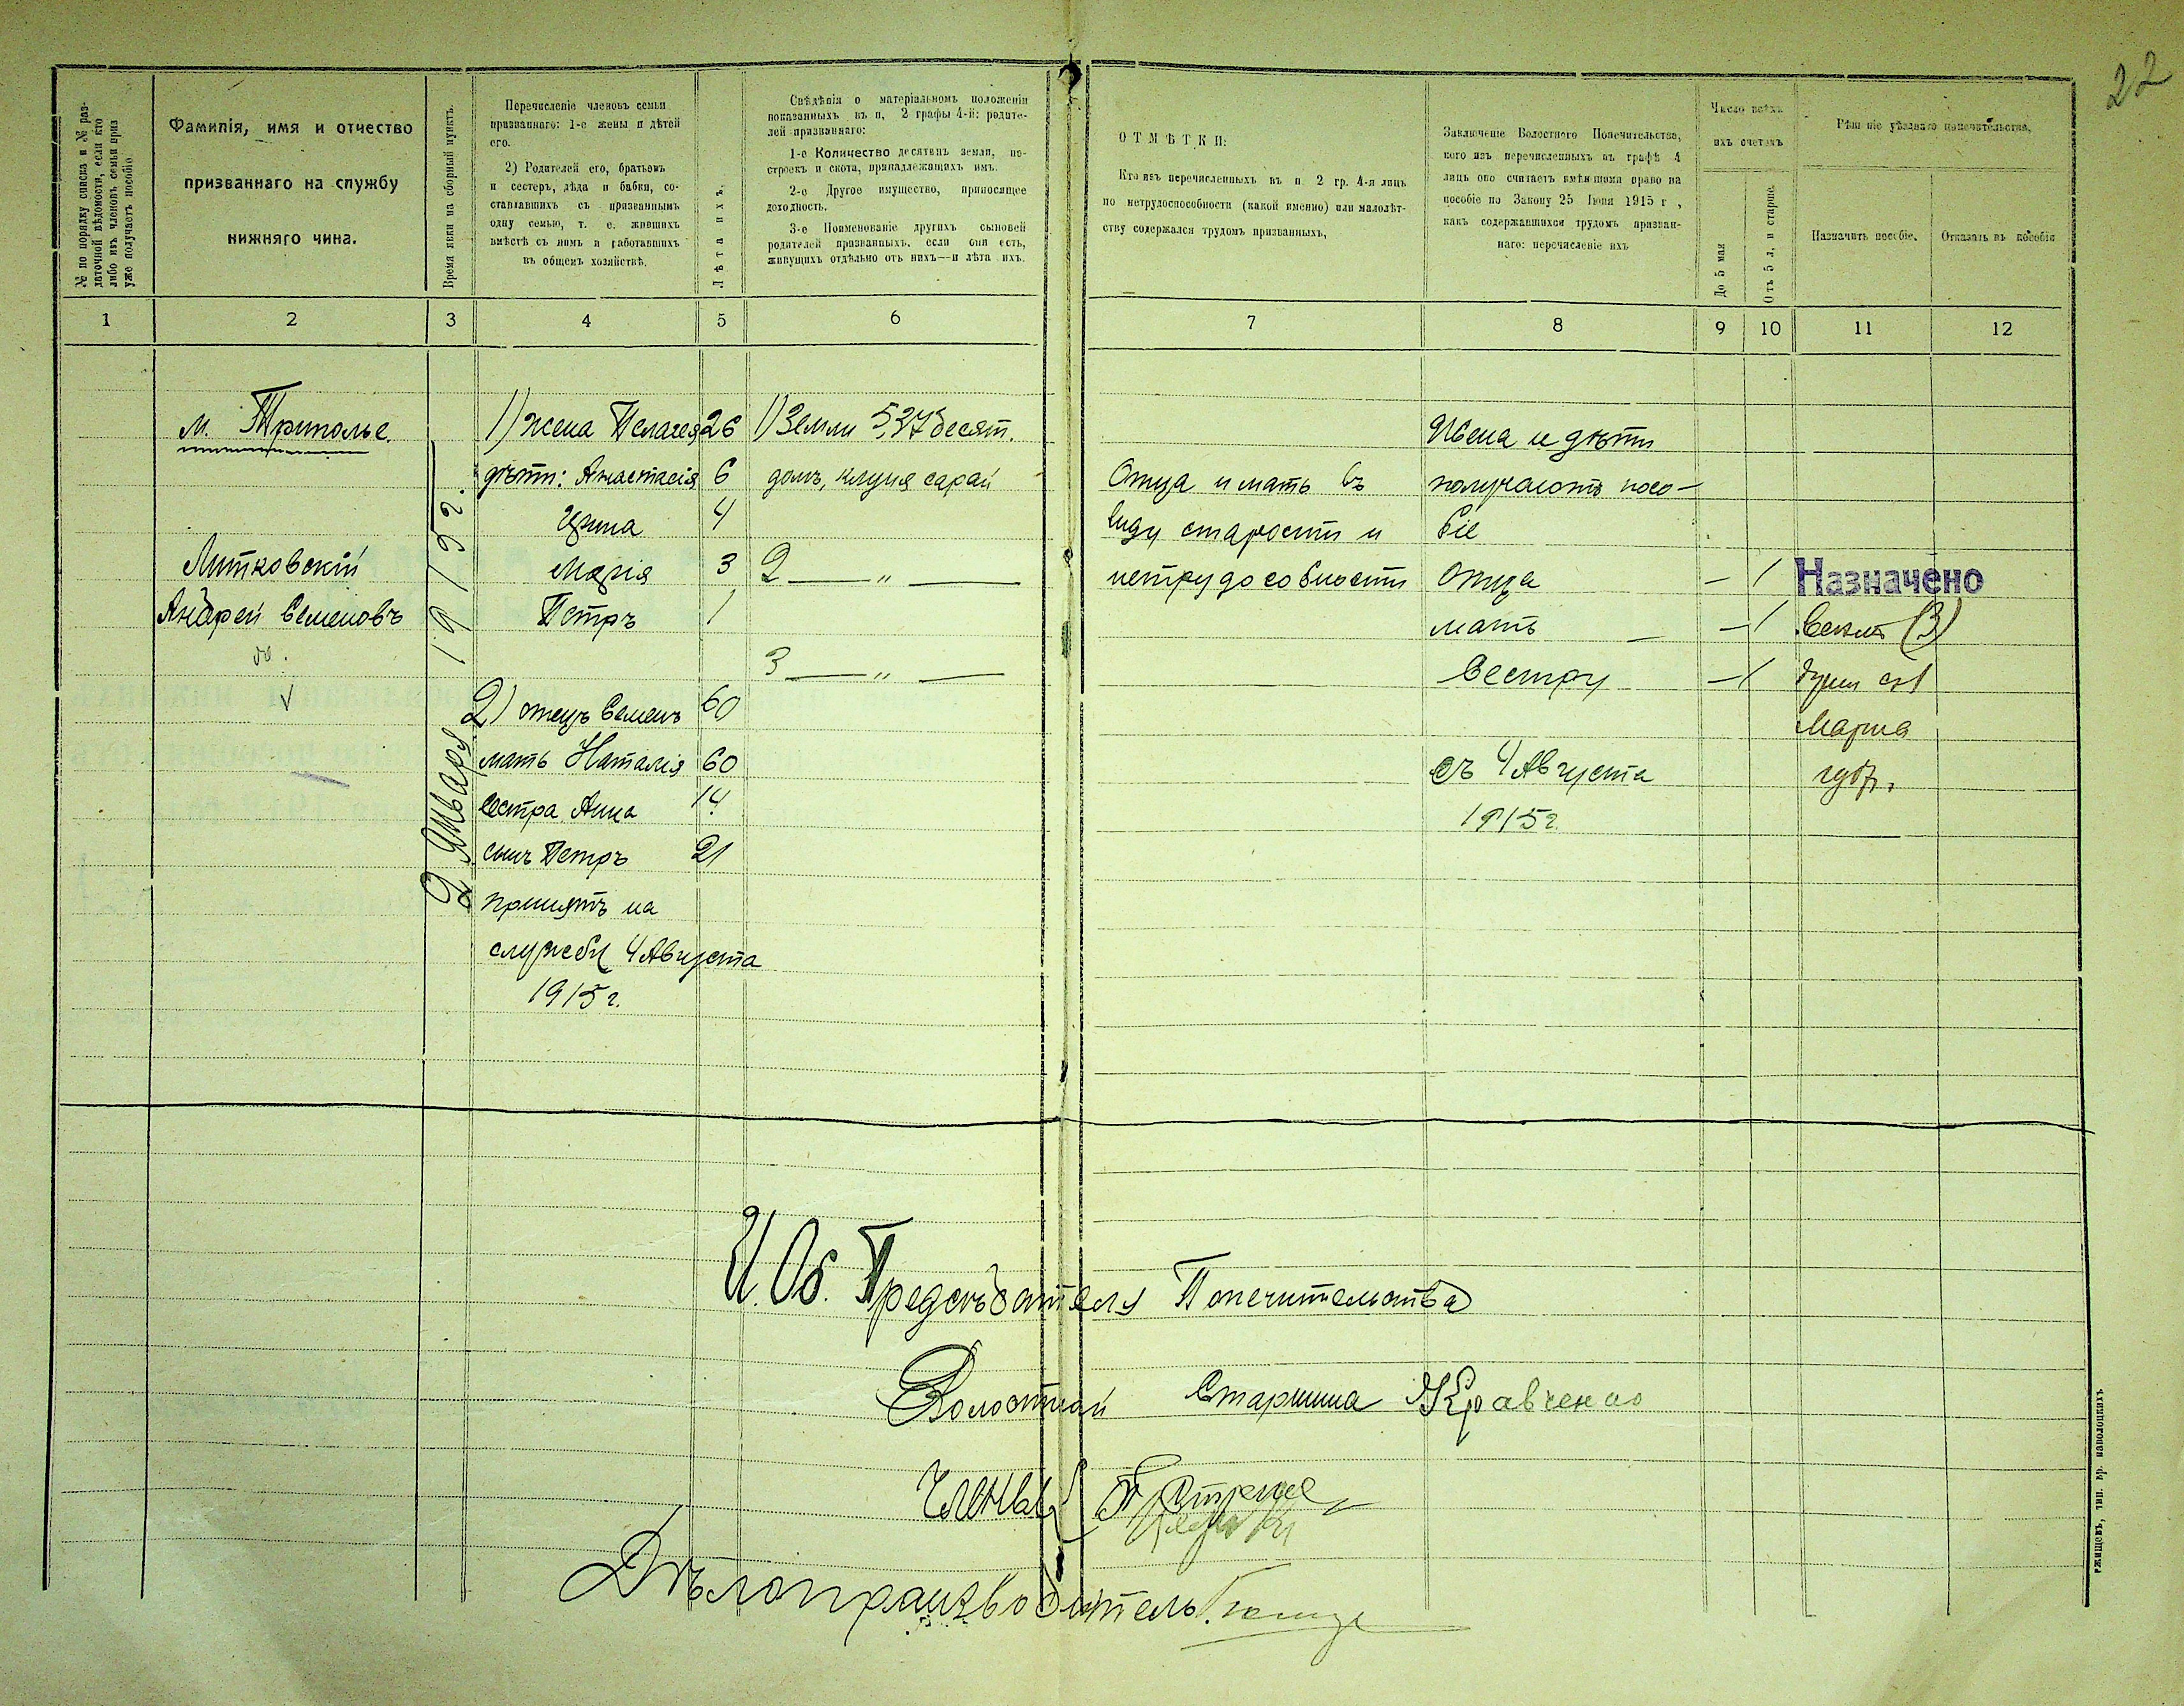 22
№ по порядку списка и № раз-
даточной вѣдомости, если кто
либо изъ членовъ семьи приз
уже получаетъ пособіе.
Фамилія, имя и отчество
призваннаго на службу
нижняго чина.
Время явки на сборный пунктъ.
Перечисленіе членовъ семьи
призваннаго: 1-е жены и дѣтей
его.
2) Родителей его, братьевъ
и сестеръ, дѣда и бабки, со-
ставлявшихъ съ призваннымъ
одну семью, т. е. жившихъ
вмѣстѣ съ нимъ и работавшихъ
въ общемъ хозяйствѣ.
Лѣта ихъ.
Свѣдѣнія о матеріальномъ положеніи
показанныхъ въ п, 2 графы 4-й: родите-
лей призваннаго:
1-е Количество десятинъ земли, по-
строекъ и скота, принадлежащихъ имъ.
2-е Другое имущество, приносящее
доходность.
3-е Поименованіе другихъ сыновей
родителей призванныхъ, если они есть,
живущихъ отдѣльно отъ нихъ—и лѣта ихъ.
ОТМѢТКИ:
Кто изъ перечисленныхъ въ п. 2 гр. 4-я лицъ
по нетрудоспособности (какой именно) или малолѣт-
ству содержался трудомъ призванныхъ,
Заключеніе Волостного Попечительства,
кого изъ перечисленныхъ въ графѣ 4
лицъ оно считаетъ имѣющими право на
пособіе по Закону 25 Іюня 1915 г ,
какъ содержавшихся трудомъ призван-
наго: перечисленіе ихъ
Число всѣхъ
ихъ счетомъ
До 5 мая
Отъ 5 л. и старше.
Рѣшеніе уѣзднаго попечительства,
Назначить пособіе.
Отказать въ пособіи
1 2 3 4 5 6 7 8 9 10 11 12
м. Триполье.
Литковскій
Андрей Семеновъ
2 Января 1915 г.
1) жена Пелагея 26
дѣти: Анастасія 6
Ирина 4
Марія 3
Петръ 1
2) отецъ Семенъ 60
мать Наталія 60
сестра Анна 14
сынъ Петръ 21
принятъ на
службу 4 Августа
1915 г.
1) Земли 5,37 десят.
домъ, клуня сарай
2 — „ —
3 — „ —
Отца и мать въ
виду старости и
нетрудособности
Жена и дѣти
получаютъ посо-
біе
Отца — 1
мать — — 1
Сестру — 1
съ 4 Августа
1915 г.
Назначено
(3)
души съ 1
Марта
И. Об. Предсѣдателя Попечительства
Волостной Старшина Кравченко
Члены {
Дѣлопроизводитель
ржищевъ, тип. бр. наволоцкихъ